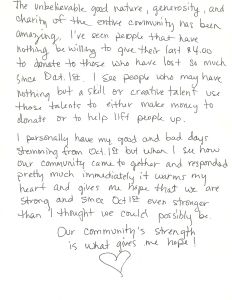 The unbelievable good nature, generosity, and
charity of the entire community has been
amazing. I've seen people that have
nothing be willing to give their last $4.00
to donate to those who have lost so much
since Oct. 1st. I see people who may have
nothing but a skill or creative talent use
those talents to either make money to
donate or to help lift people up.
I personally have my good and bad days
stemming from Oct 1st but when I see how
our community came to gether and responded
pretty much immediately it warms my
heart and gives me hope that we are
strong and since Oct 1st even stronger
than I thought we could possibly be.
Our community's strength
is what gives me hope!